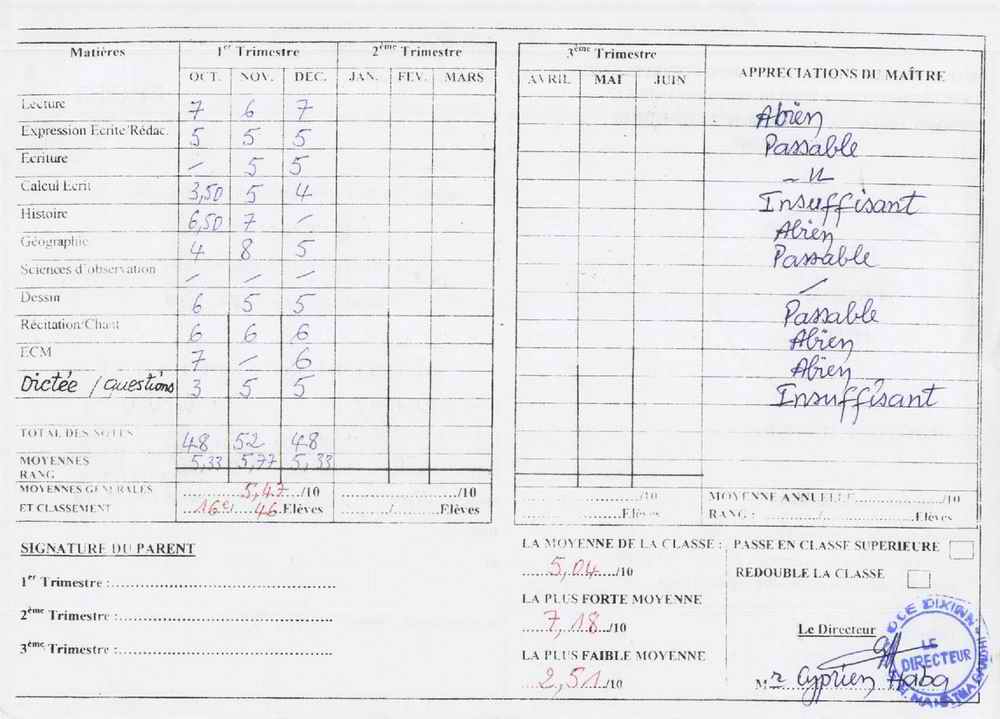 Matières 1er Trimestre 2ème Trimestre 3ème Trimestre APPRECIATIONS DU MAÎTRE
OCT. NOV. DEC. JAN. FEV. MARS AVRIL MAI JUIN
Lecture 7 6 7 Abien
Expression Ecrite/Rédac. 5 5 5 Passable
Ecriture - 5 5 - 11
Calcul Ecrit 3,50 5 4 Insuffisant
Histoire 6,50 7 - Abien
Géographie 4 8 5 Passable
Sciences d'observation - - - -
Dessin 6 5 5 Passable
Récitation/Chant 6 6 6 Abien
ECM 7 - 6 Abien
Dictée / questions 3 5 5 Insuffisant
TOTAL DES NOTES 48 52 48
MOYENNES 5,33 5,77 5,33
RANG
MOYENNES GENERALES 5,47 /10 /10 /10 MOYENNE ANNUELLE /10
ET CLASSEMENT 16e/ 46 Elèves / Elèves Elèves RANG : / Elèves
SIGNATURE DU PARENT
1er Trimestre :
2ème Trimestre :
3ème Trimestre :
LA MOYENNE DE LA CLASSE :
5,04 /10
LA PLUS FORTE MOYENNE
7,18 /10
LA PLUS FAIBLE MOYENNE
2,51 /10
PASSE EN CLASSE SUPERIEURE
REDOUBLE LA CLASSE
Le Directeur
LE
DIRECTEUR
Mr Cyprien Haba